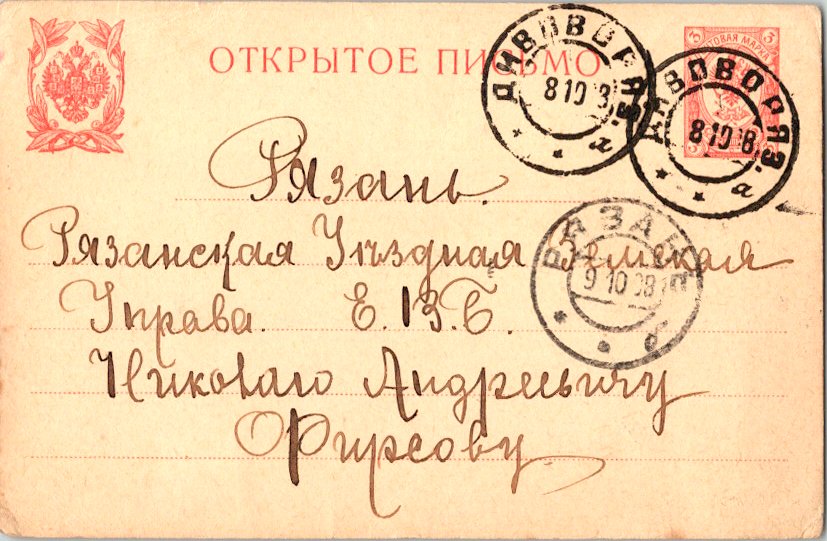 ОТКРЫТОЕ ПИСЬМО
ДИВОВО РЯЗ.
8 10 08
а
ДИВОВО РЯЗ.
8 10 08
а
Рязань.
РЯЗАНЬ
9 10 08
Рязанская Уѣздная Земская
Управа. Е. В. Б.
Николаю Андреевичу
Фирсову